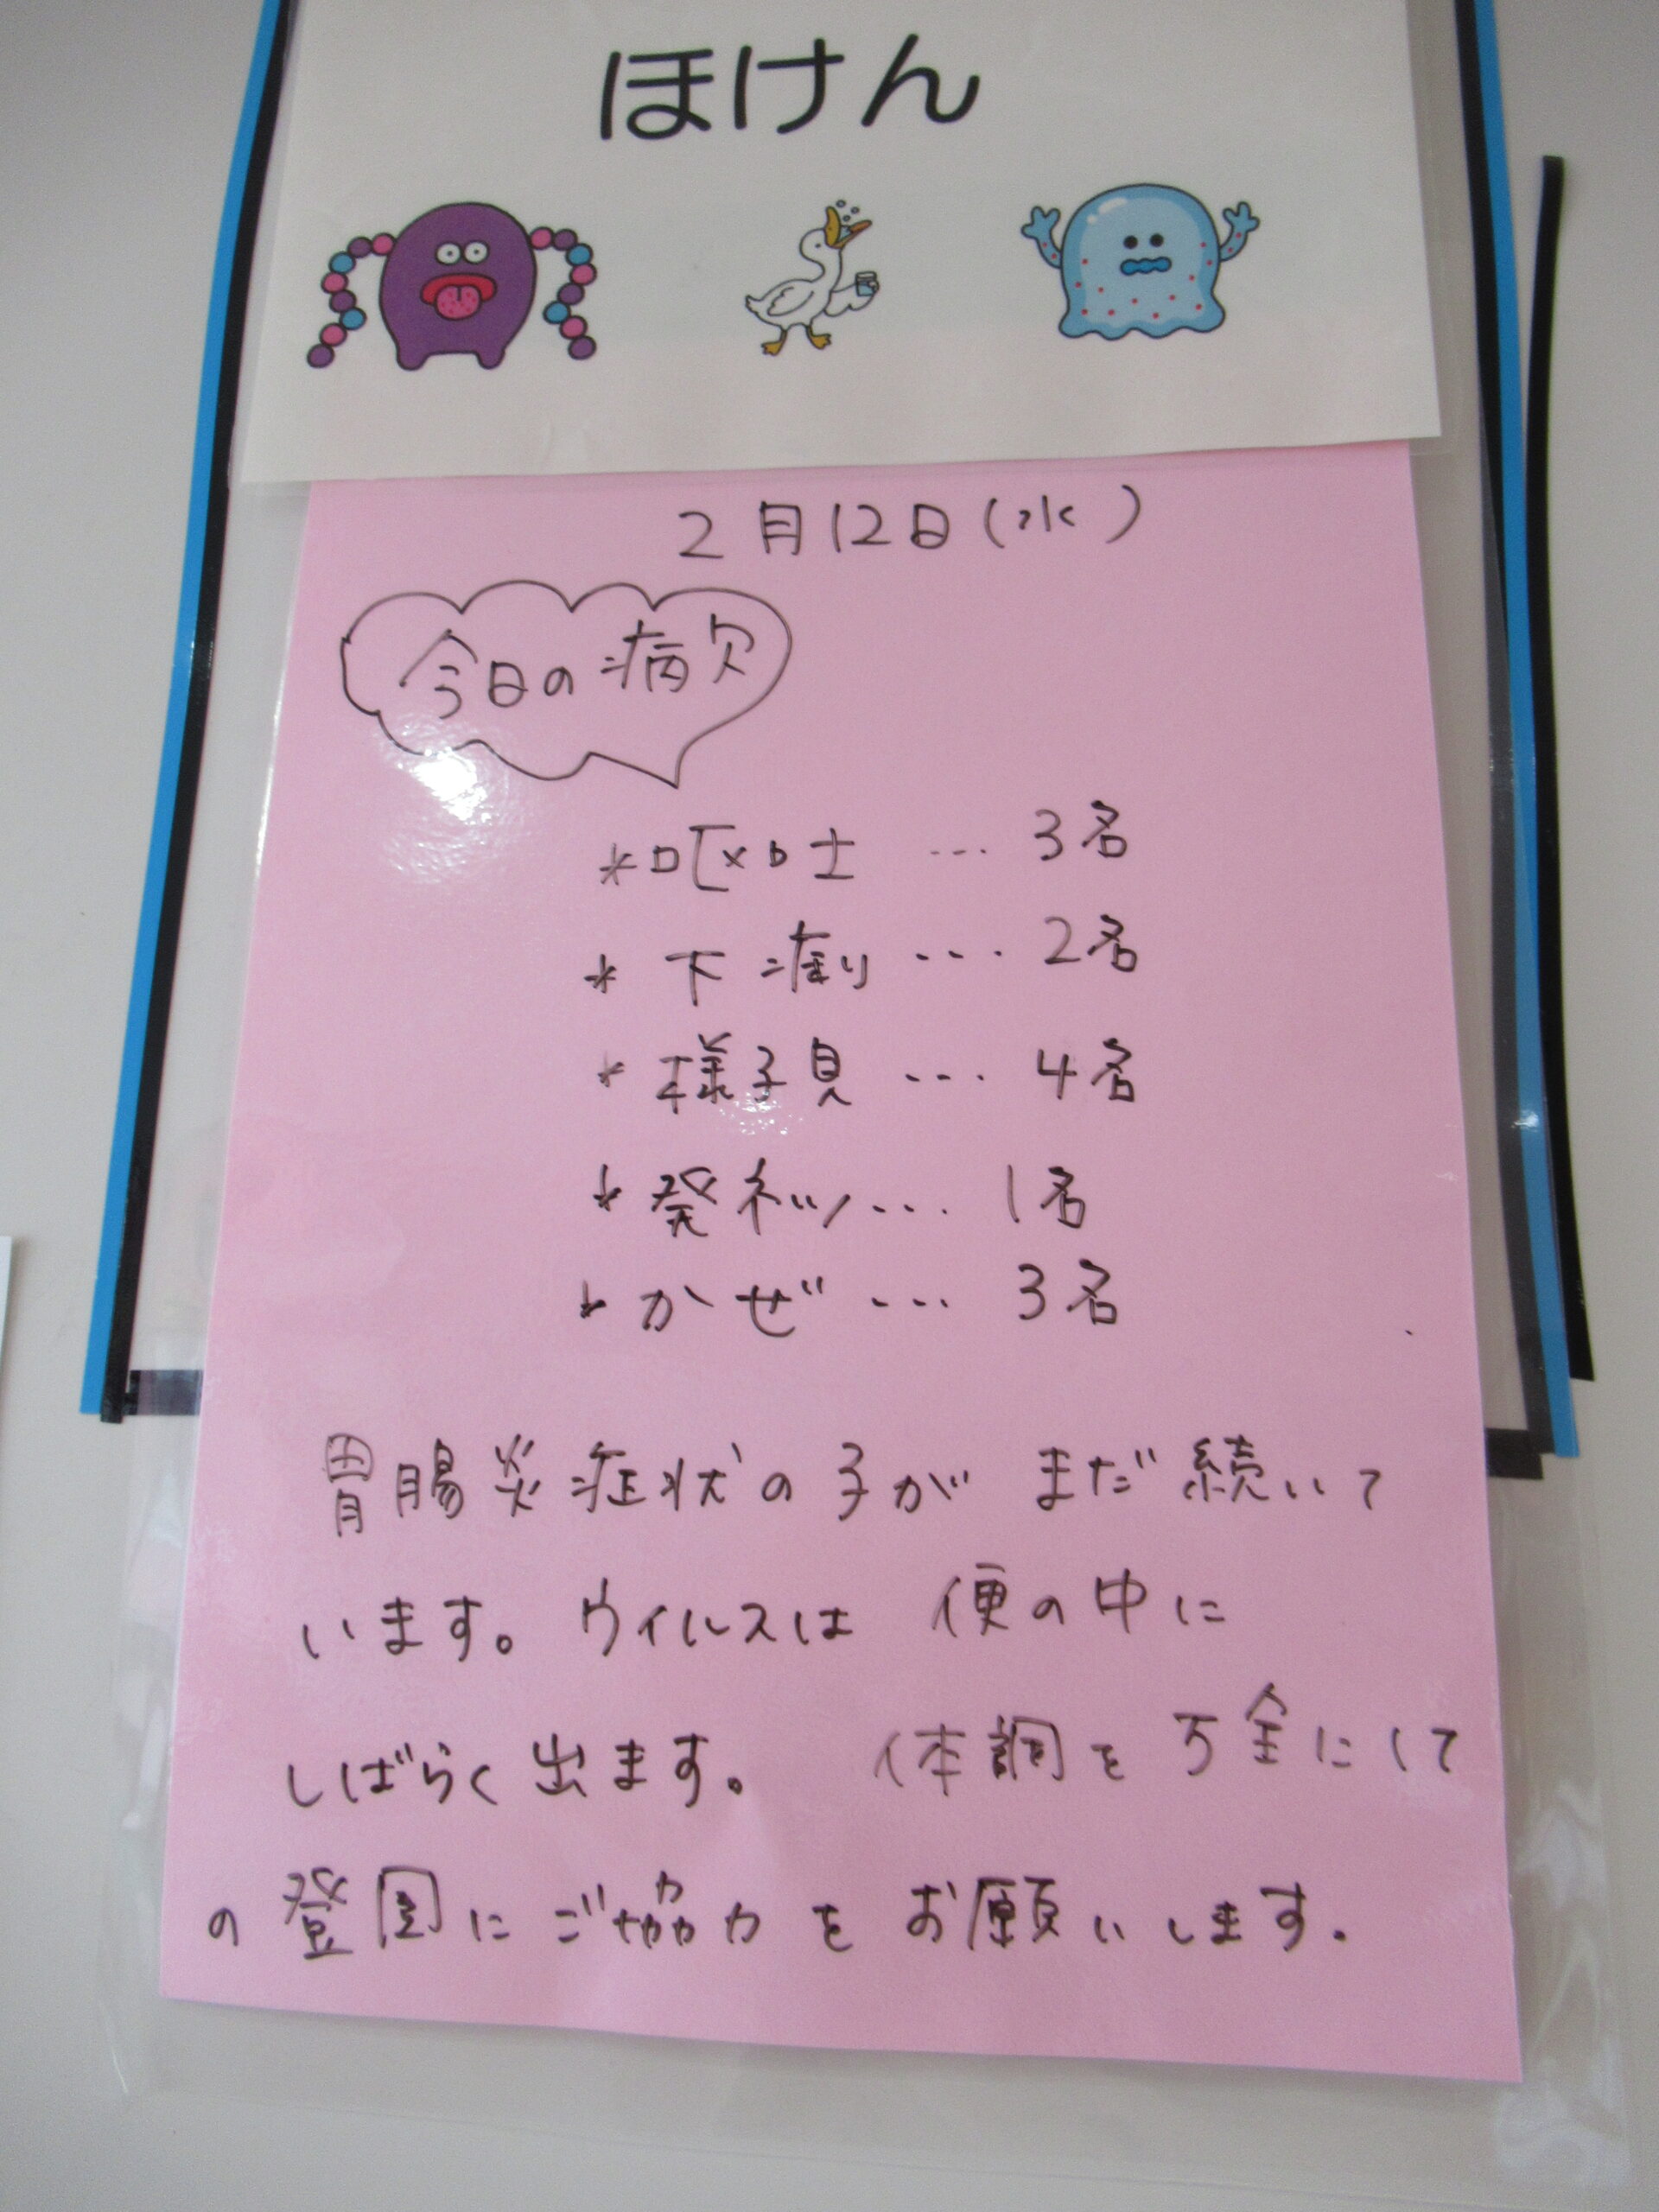 ほけん
2月12日(水)
今日の病欠
*嘔吐 … 3名
*下痢 … 2名
*様子見 … 4名
*発ネツ … 1名
*かぜ … 3名
胃腸炎症状の子がまだ続いて
います。ウイルスは便の中に
しばらく出ます。体調を万全にして
の登園にご協力をお願いします。